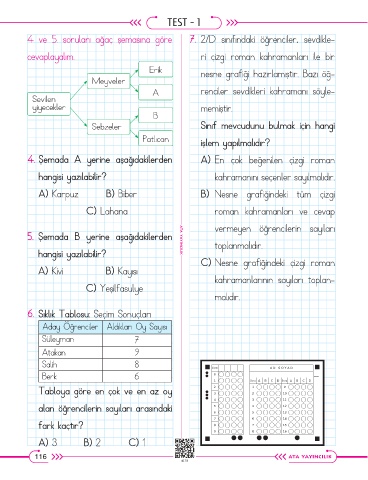 TEST - 1
4. ve 5. soruları ağaç şemasına göre
cevaplayalım.
Sevilen
yiyecekler
Meyveler
Sebzeler
Erik
A
B
Patlıcan
4. Şemada A yerine aşağıdakilerden
hangisi yazılabilir?
A) Karpuz B) Biber
C) Lahana
5. Şemada B yerine aşağıdakilerden
hangisi yazılabilir?
A) Kivi B) Kayısı
C) Yeşilfasulye
6. Sıklık Tablosu: Seçim Sonuçları
Aday Öğrenciler Aldıkları Oy Sayısı
Süleyman 7
Atakan 9
Salih 8
Berk 6
Tabloya göre en çok ve en az oy
alan öğrencilerin sayıları arasındaki
fark kaçtır?
A) 3 B) 2 C) 1
7. 2/D sınıfındaki öğrenciler, sevdikle-
ri çizgi roman kahramanları ile bir
nesne grafiği hazırlamıştır. Bazı öğ-
renciler sevdikleri kahramanı söyle-
memiştir.
Sınıf mevcudunu bulmak için hangi
işlem yapılmalıdır?
A) En çok beğenilen çizgi roman
kahramanını seçenler sayılmalıdır.
B) Nesne grafiğindeki tüm çizgi
roman kahramanları ve cevap
vermeyen öğrencilerin sayıları
toplanmalıdır.
C) Nesne grafiğindeki çizgi roman
kahramanlarının sayıları toplan-
malıdır.
AD SOYAD
116
ATA YAYINCILIK